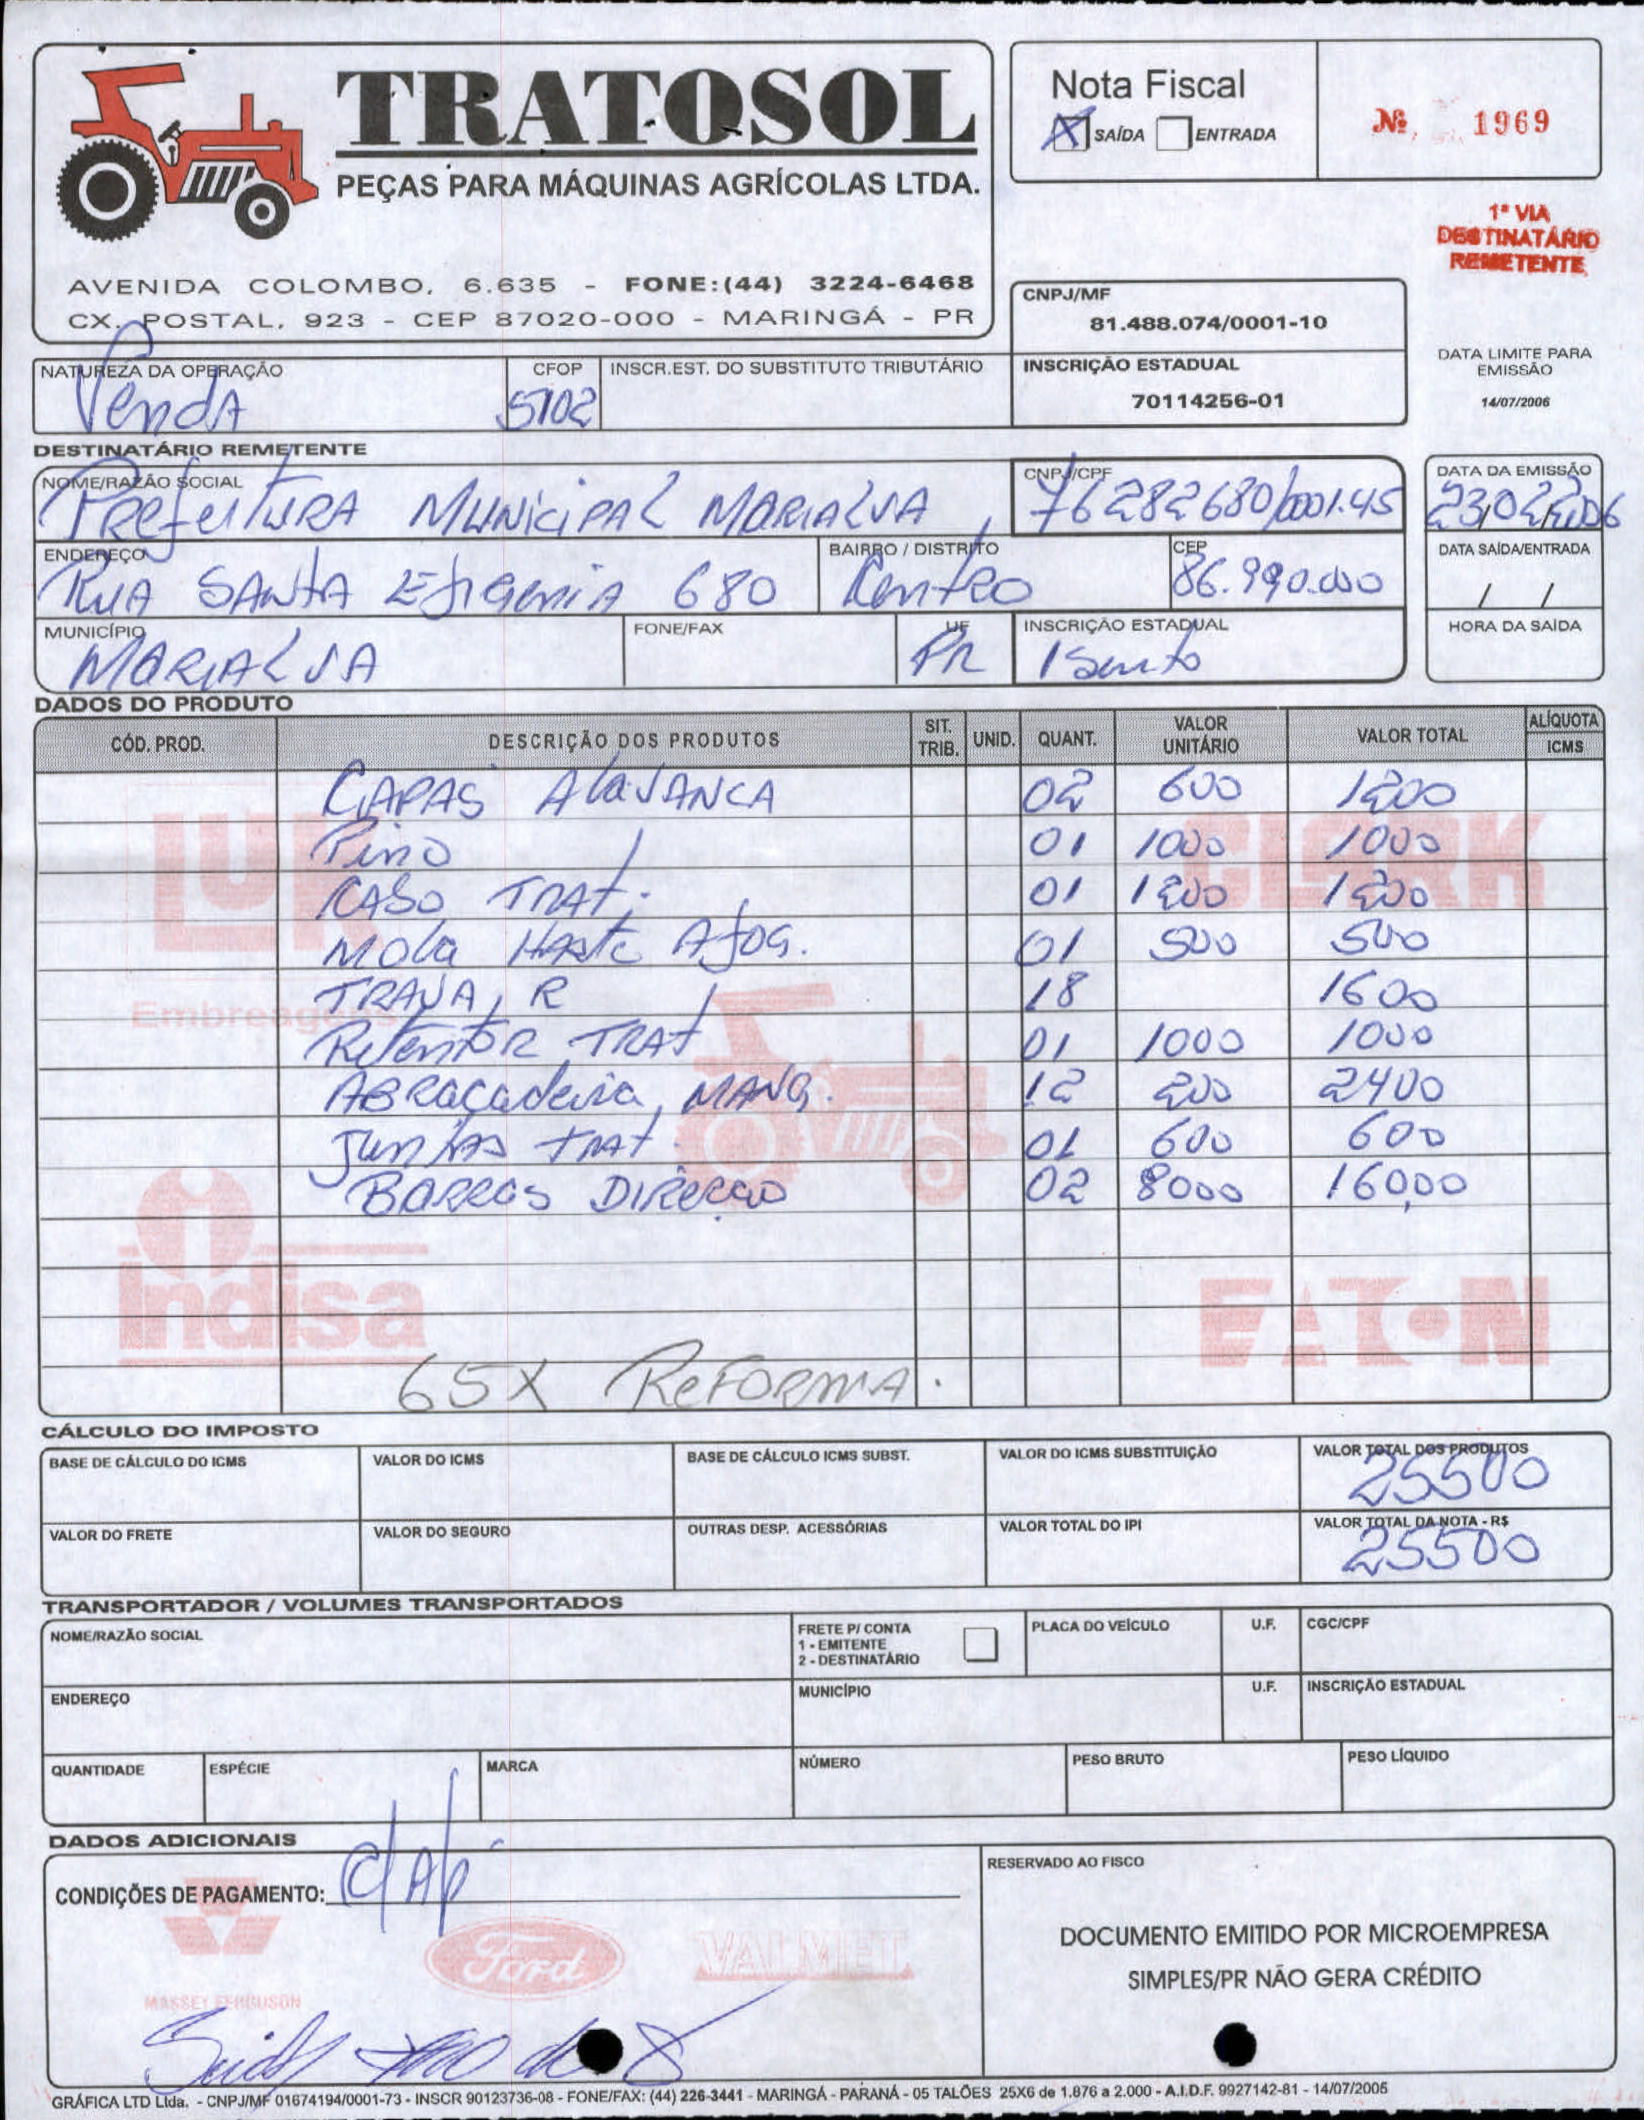 TRATOSOL
PEÇAS PARA MÁQUINAS AGRÍCOLAS LTDA.
AVENIDA COLOMBO, 6.635 - FONE:(44) 3224-6468
CX. POSTAL, 923 - CEP 87020-000 - MARINGÁ - PR
Nota Fiscal
X SAÍDA ENTRADA
Nº 1969
1ª VIA
DESTINATÁRIO
REMETENTE
CNPJ/MF
81.488.074/0001-10
INSCRIÇÃO ESTADUAL
70114256-01
DATA LIMITE PARA
EMISSÃO
14/07/2006
NATUREZA DA OPERAÇÃO CFOP INSCR.EST. DO SUBSTITUTO TRIBUTÁRIO
Venda 5102
DESTINATÁRIO REMETENTE
NOME/RAZÃO SOCIAL CNPJ/CPF DATA DA EMISSÃO
Prefeitura Municipal Marialva 76282680/0001.45 23/02/2006
ENDEREÇO BAIRRO / DISTRITO CEP DATA SAÍDA/ENTRADA
Rua Santa Efigenia 680 Centro 86.990.000 / /
MUNICÍPIO FONE/FAX UF INSCRIÇÃO ESTADUAL HORA DA SAÍDA
Marialva PR Isento
DADOS DO PRODUTO
CÓD. PROD. DESCRIÇÃO DOS PRODUTOS SIT. TRIB. UNID. QUANT. VALOR UNITÁRIO VALOR TOTAL ALÍQUOTA ICMS
Capas Alavanca 02 600 1200
Pino 01 1000 1000
Trat. 01 1200 1200
Mola Haste Afog. 01 500 500
Trava R 18 1600
Retentor Trat 01 1000 1000
Abraçadeira Mang. 12 200 2400
Juntas Trat. 01 600 600
Barras Direcao 02 8000 16000
65X Reforma.
LUK
Embreagens
CLARK
indisa
EATON
CÁLCULO DO IMPOSTO
BASE DE CÁLCULO DO ICMS VALOR DO ICMS BASE DE CÁLCULO ICMS SUBST. VALOR DO ICMS SUBSTITUIÇÃO VALOR TOTAL DOS PRODUTOS
25500
VALOR DO FRETE VALOR DO SEGURO OUTRAS DESP. ACESSÓRIAS VALOR TOTAL DO IPI VALOR TOTAL DA NOTA - R$
25500
TRANSPORTADOR / VOLUMES TRANSPORTADOS
NOME/RAZÃO SOCIAL FRETE P/ CONTA PLACA DO VEÍCULO U.F. CGC/CPF
1 - EMITENTE
2 - DESTINATÁRIO
ENDEREÇO MUNICÍPIO U.F. INSCRIÇÃO ESTADUAL
QUANTIDADE ESPÉCIE MARCA NÚMERO PESO BRUTO PESO LÍQUIDO
DADOS ADICIONAIS
CONDIÇÕES DE PAGAMENTO:
RESERVADO AO FISCO
DOCUMENTO EMITIDO POR MICROEMPRESA
SIMPLES/PR NÃO GERA CRÉDITO
MASSEY FERGUSON
Ford
VALMET
GRÁFICA LTD Ltda. - CNPJ/MF 01674194/0001-73 - INSCR 90123736-08 - FONE/FAX: (44) 226-3441 - MARINGÁ - PARANÁ - 05 TALÕES 25X6 de 1.876 a 2.000 - A.I.D.F. 9927142-81 - 14/07/2005